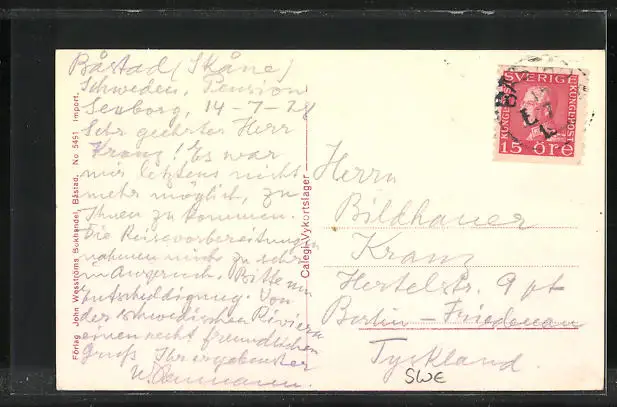 Båstad (Skåne)
Schweden, Pension
Seeborg, 14-7-28
Sehr geehrter Herr
Kranz! Es war
mir letztens nicht
mehr möglich, zu
Ihnen zu kommen.
Die Reisevorbereitungen
nahmen mich zu sehr
in Anspruch. Bitte um
Entschuldigung. Von
der schwedischen Riviera
einen recht freundlichen
Gruß Ihr ergebenster
Förlag John Wesströms Bokhandel, Båstad. No 5491 Import.
Calegi-Vykortslager
SVERIGE
KUNGL. POST
15 ÖRE
Herrn
Bildhauer
Kranz
Hertelstr. 9 pt
Berlin-Friedenau
Tyskland.
SWE